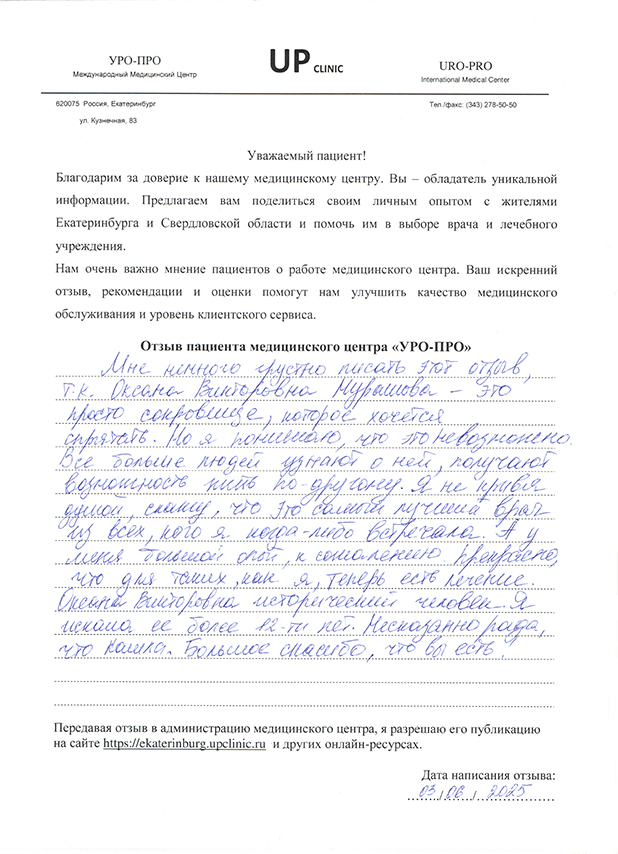 УРО-ПРО
Международный Медицинский Центр
UP CLINIC
URO-PRO
International Medical Center
620075 Россия, Екатеринбург
ул. Кузнечная, 83
Тел./факс: (343) 278-50-50
Уважаемый пациент!
Благодарим за доверие к нашему медицинскому центру. Вы – обладатель уникальной
информации. Предлагаем вам поделиться своим личным опытом с жителями
Екатеринбурга и Свердловской области и помочь им в выборе врача и лечебного
учреждения.
Нам очень важно мнение пациентов о работе медицинского центра. Ваш искренний
отзыв, рекомендации и оценки помогут нам улучшить качество медицинского
обслуживания и уровень клиентского сервиса.
Отзыв пациента медицинского центра «УРО-ПРО»
Мне немного грустно писать этот отзыв,
т.к. Оксана Викторовна Мурашова – это
просто сокровище, которое хочется
спрятать. Но я понимаю, что это невозможно.
Все больше людей узнают о ней, получают
возможность жить по-другому. Я не кривя
душой, скажу, что это самый лучший врач
из всех, кого я когда-либо встречала. А у
меня большой опыт, к сожалению. Прекрасно,
что для таких, как я, теперь есть лечение.
Оксана Викторовна исторический человек. Я
искала ее более 12-ти лет. Несказанно рада,
что нашла. Большое спасибо, что вы есть!
Передавая отзыв в администрацию медицинского центра, я разрешаю его публикацию
на сайте https://ekaterinburg.upclinic.ru и других онлайн-ресурсах.
Дата написания отзыва:
03 / 06 / 2025